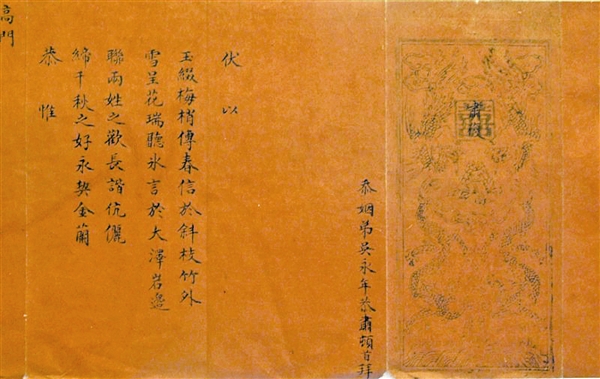 肅
忝姻弟吳永年恭肅頓首拜
伏以
玉綴梅梢傳春信於斜枝竹外
雪呈花瑞聽氷言於大澤岩邊
聯兩姓之歡長諧伉儷
締千秋之好永契金蘭
恭惟
高門